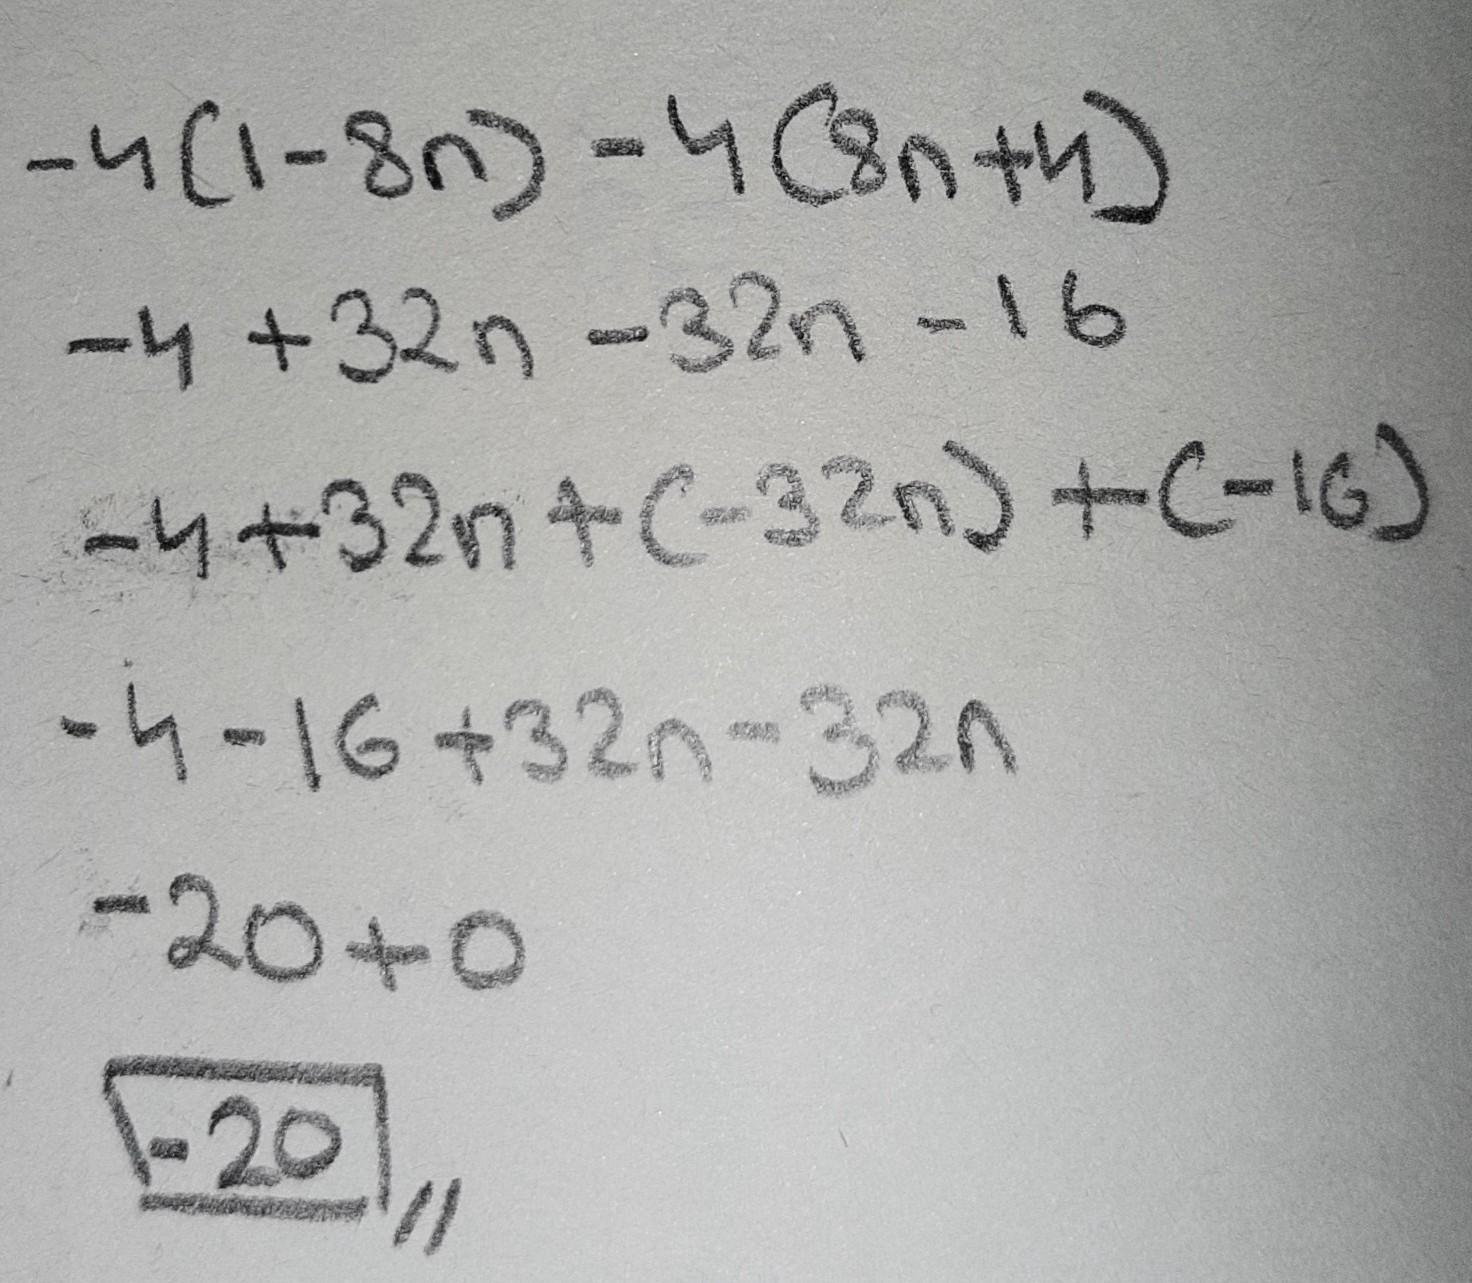 -4(1-8n) -4(8n+4)
-4 +32n -32n -16
-4+32n+(-32n) +(-16)
-4-16+32n-32n
-20+0
-20 //